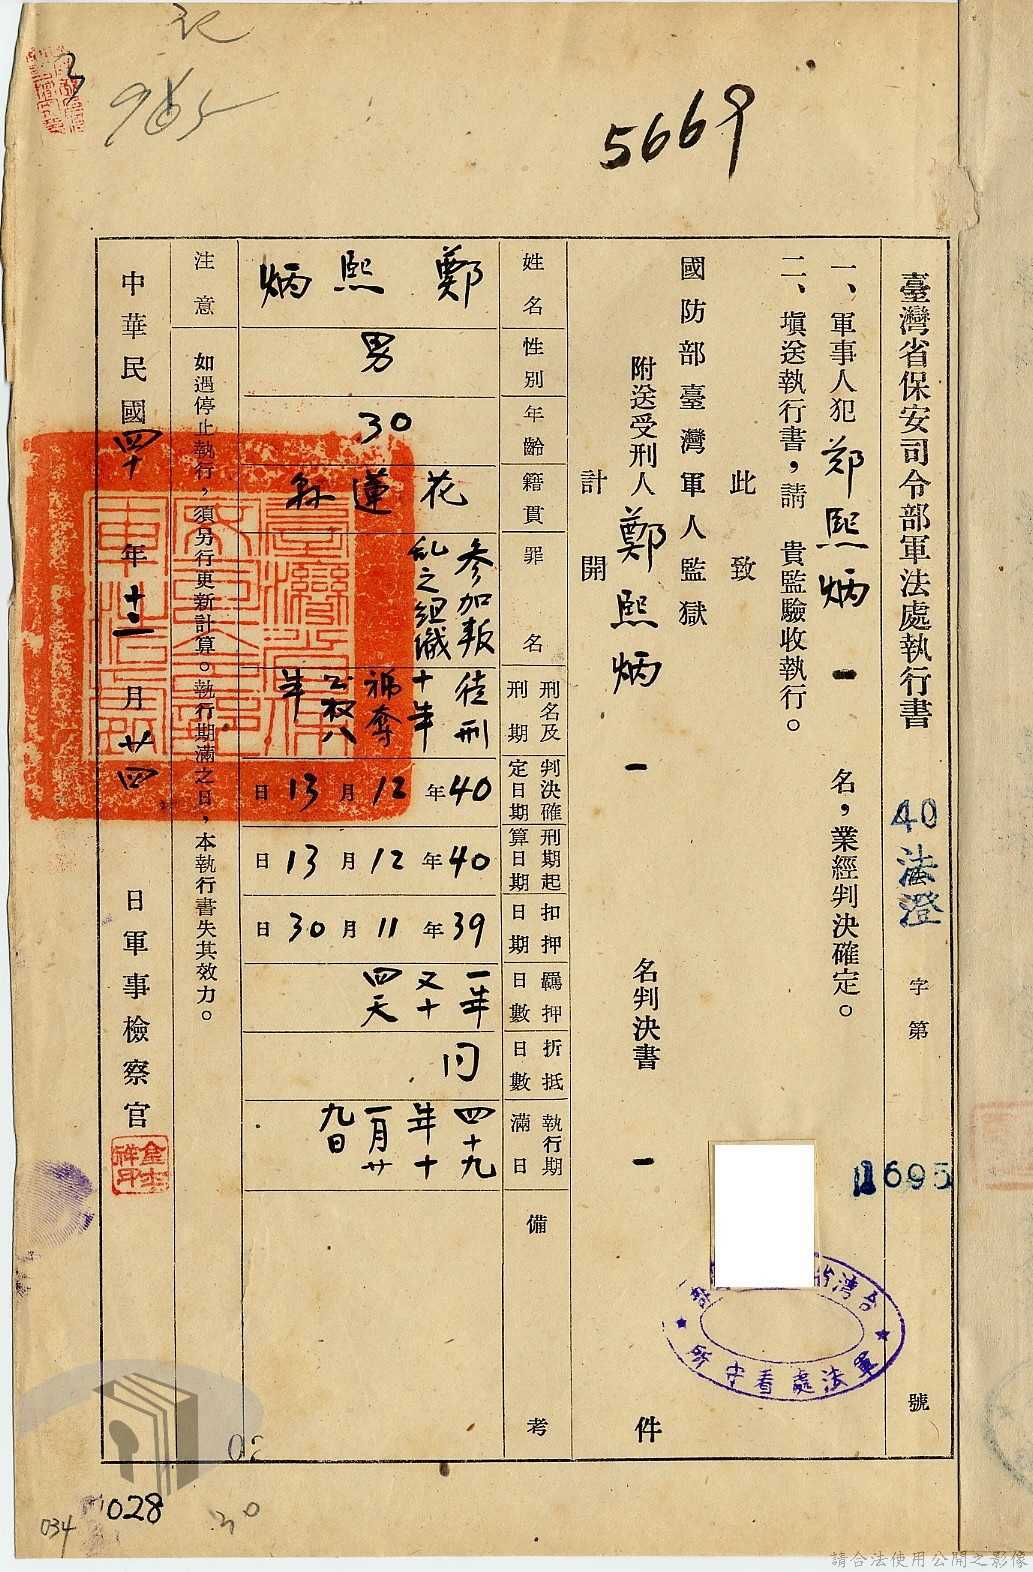 5669
965
臺灣省保安司令部軍法處執行書 40 法澄 字第 1695 號
一、軍事人犯 鄭熙炳 一 名，業經判決確定。
二、塡送執行書，請 貴監驗收執行。
此致
國防部臺灣軍人監獄
附送受刑人 鄭熙炳 名判決書 一 件
計開 一
姓名 鄭熙炳
性別 男
年齡 30
籍貫 花蓮縣
罪名 参加叛乱之組織
刑名及刑期 徒刑十年褫奪公权八年
判決確定日期 40年12月13日
刑期起算日期 40年12月13日
扣押日期 39年11月30日
羈押日數 一年又十四天
折抵日數 同
執行期滿日 四十九年十一月廿九日
備考
注意 如遇停止執行，須另行更新計算。執行期滿之日，本執行書失其效力。
中華民國四十年十二月廿四日軍事檢察官
台灣省
軍法處看守所
028
034
30
請合法使用公開之影像